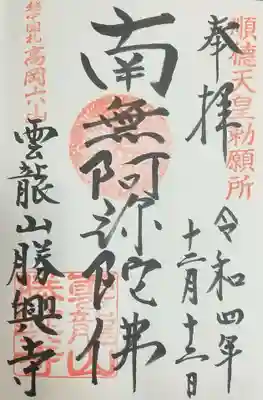 順德天皇勅願所
奉拝
令和四年
十二月十三日
南無阿弥陀佛
高岡六山
雲龍山勝興寺